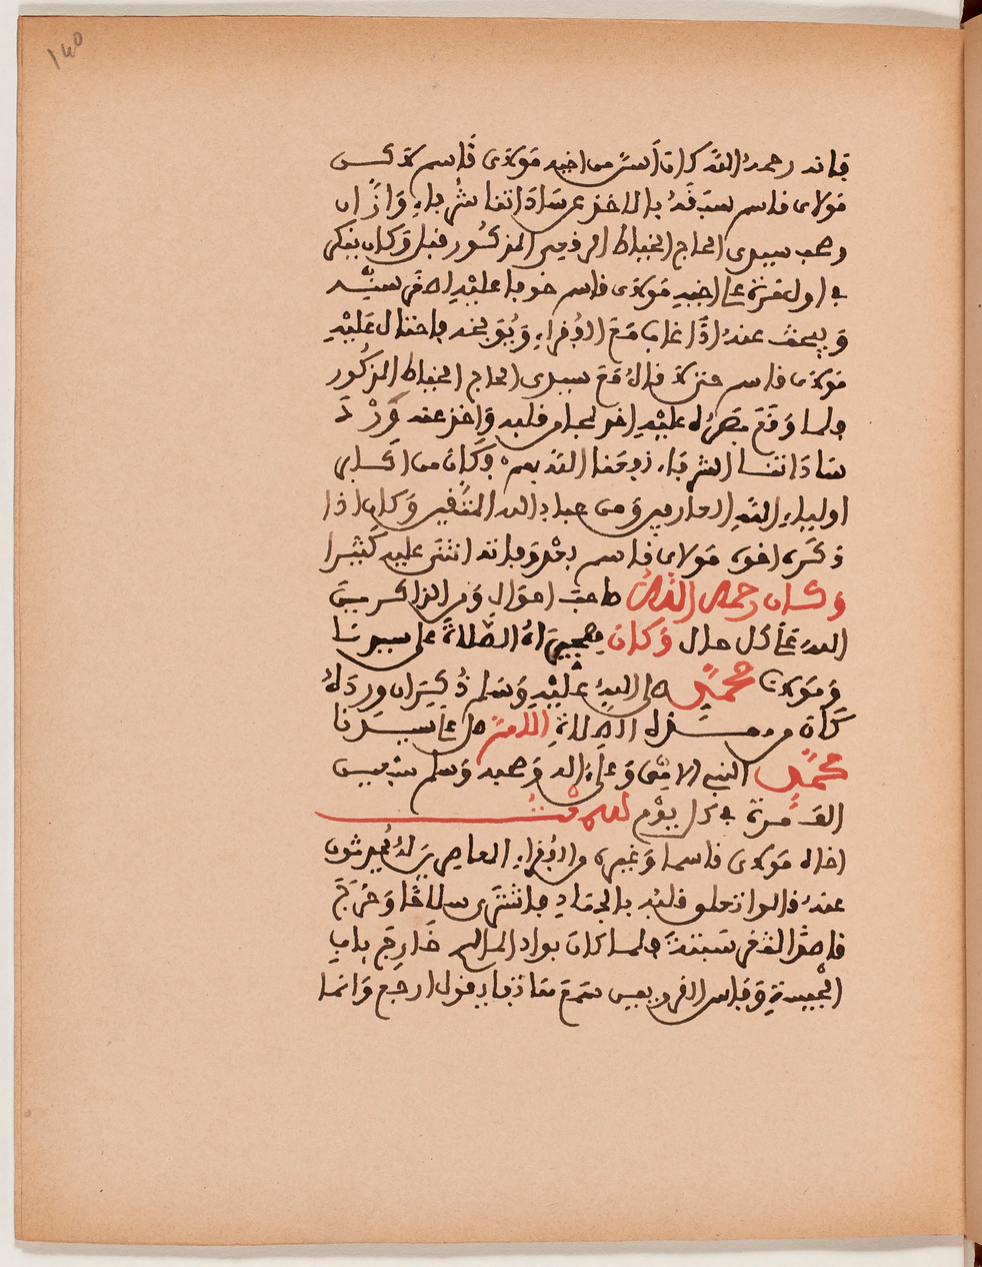 140
فإنه رحمه الله كان أسن من أخيه مولاي قاسم لاكن
مولاي قاسم سبقه بالاخذ عن ساداتنا شرفاء وازان
وصحب سيدي الحاج الخياط الرقعي المذكور قبل وكان ينكر
في اول مرة على اخيه مولاي قاسم خوفا عليه
ويبحث عنه اذا غاب مع الفقراء ويوبخه فاحتال عليه
مولاي قاسم حتى لاقاه مع سيدي الحاج الخياط المذكور
ولما وقع بصره عليه اخذ بمجامع قلبه واخذ عنه ورد
ساداتنا الشرفاء نفعنا الله بهم وكان من اكابر
اولياء الله العارفين ومن عباد الله المتقين وكان اذا
ذكره اخوه مولاي قاسم بعد وفاته اثنى عليه كثيرا
وكان رحمه الله صاحب احوال ومن الذاكرين
الله على كل حال وكان هجيراه الصلاة على سيدنا
ومولانا محمد صلى الله عليه وسلم وكان ورده
كان من هذه الصلاة اللهم صل على سيدنا
محمد النبي الامي وعلى اله وصحبه وسلم
الف مرة في كل يوم
اخاه مولاي قاسما وغيره من الفقراء الحاضرين له يحدثون
عنه قالوا تعلق قلبه بالجهاد فاشترى سلاحا وخرج
قاصدا الثغر سبتة ولما كان بواد المالح خارج باب
الجيسة وفاس القرويين سمع مناديا يقول ارجع وانما